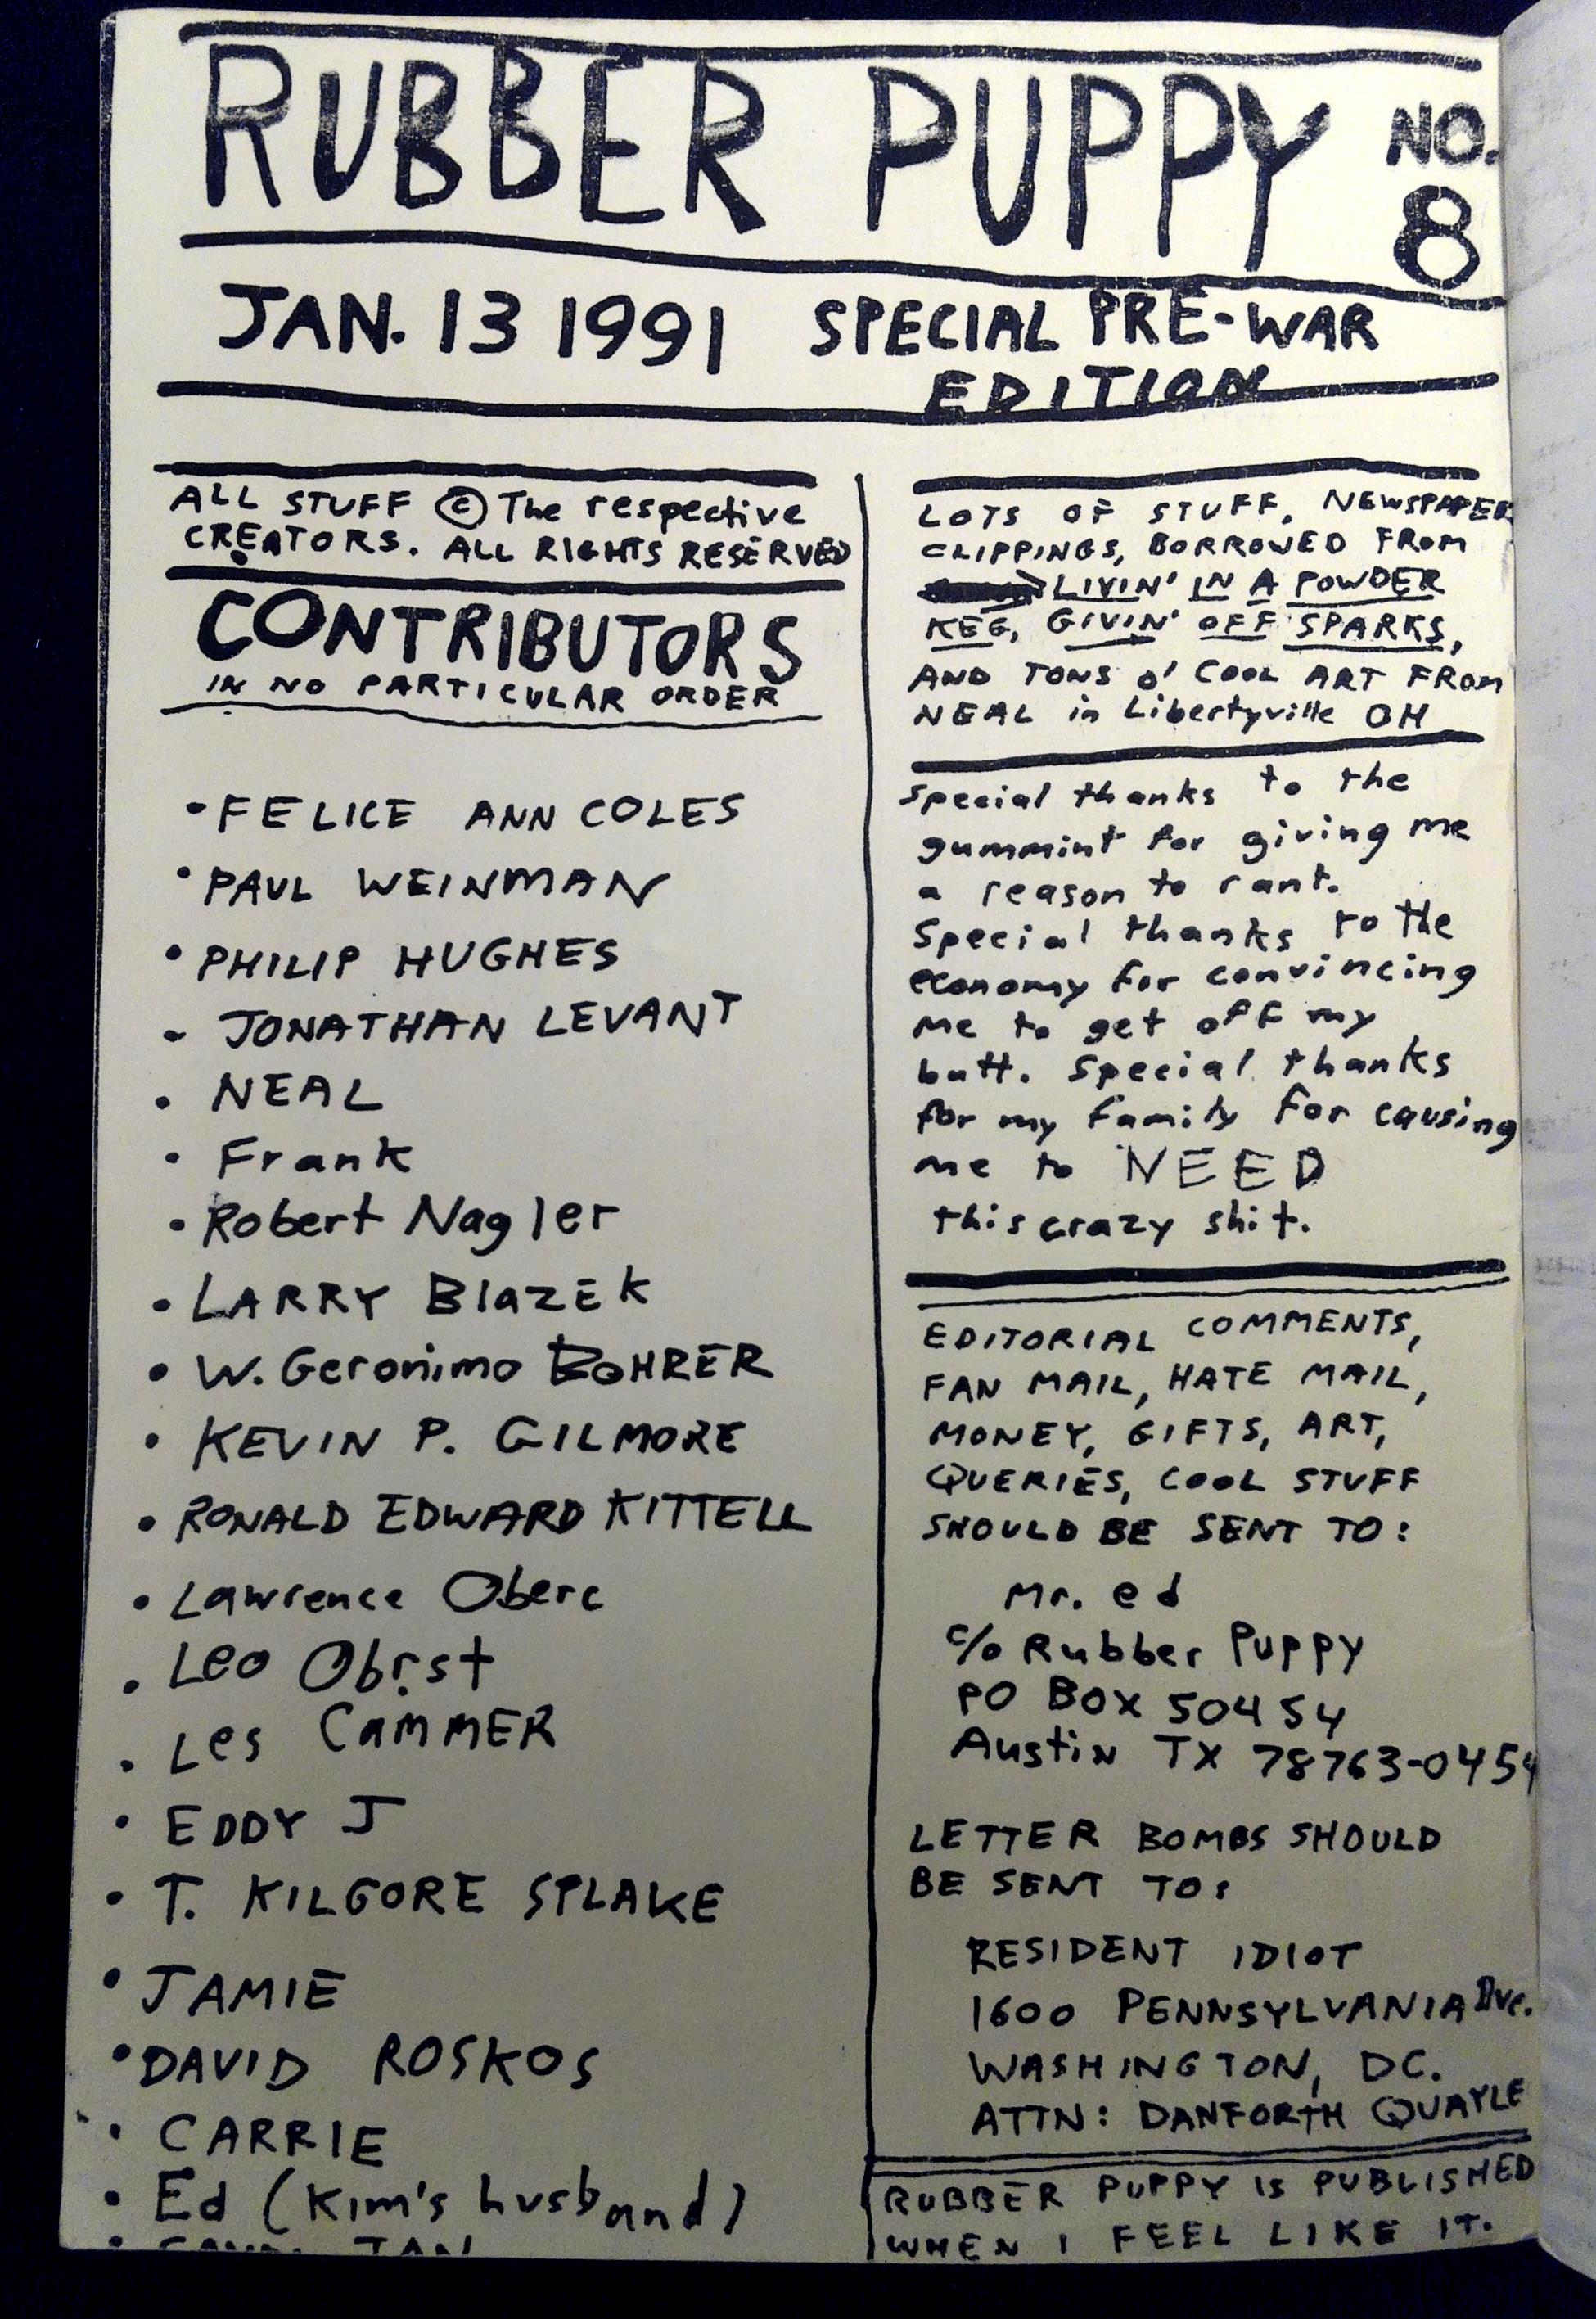 RUBBER PUPPY NO. 8
JAN. 13 1991 SPECIAL PRE-WAR
EDITION
ALL STUFF © The respective
CREATORS. ALL RIGHTS RESERVED
CONTRIBUTORS
IN NO PARTICULAR ORDER
• FELICE ANN COLES
• PAUL WEINMAN
• PHILIP HUGHES
• JONATHAN LEVANT
• NEAL
• Frank
• Robert Nagler
• LARRY BlazEk
• W. Geronimo BOHRER
• KEVIN P. GILMORE
• RONALD EDWARD KITTELL
• Lawrence Oberc
• Leo Obrst
• Les CAMMER
• EDDY J
• T. KILGORE SPLAKE
• JAMIE
• DAVID ROSKOS
• CARRIE
• Ed (Kim's husband)
LOTS OF STUFF, NEWSPAPER
CLIPPINGS, BORROWED FROM
LIVIN' IN A POWDER
KEG, GIVIN' OFF SPARKS,
AND TONS o' COOL ART FROM
NEAL in Libertyville OH
special thanks to the
gummint for giving me
a reason to rant.
Special thanks to the
economy for convincing
me to get off my
butt. Special thanks
for my family for causing
me to NEED
this crazy shit.
EDITORIAL COMMENTS,
FAN MAIL, HATE MAIL,
MONEY, GIFTS, ART,
QUERIES, COOL STUFF
SHOULD BE SENT TO:
Mr. ed
c/o Rubber Puppy
PO BOX 50454
Austin TX 78763-0454
LETTER BOMBS SHOULD
BE SENT TO:
RESIDENT IDIOT
1600 PENNSYLVANIA Ave.
WASHINGTON, DC.
ATTN: DANFORTH QUAYLE
RUBBER PUPPY IS PUBLISHED
WHEN I FEEL LIKE IT.